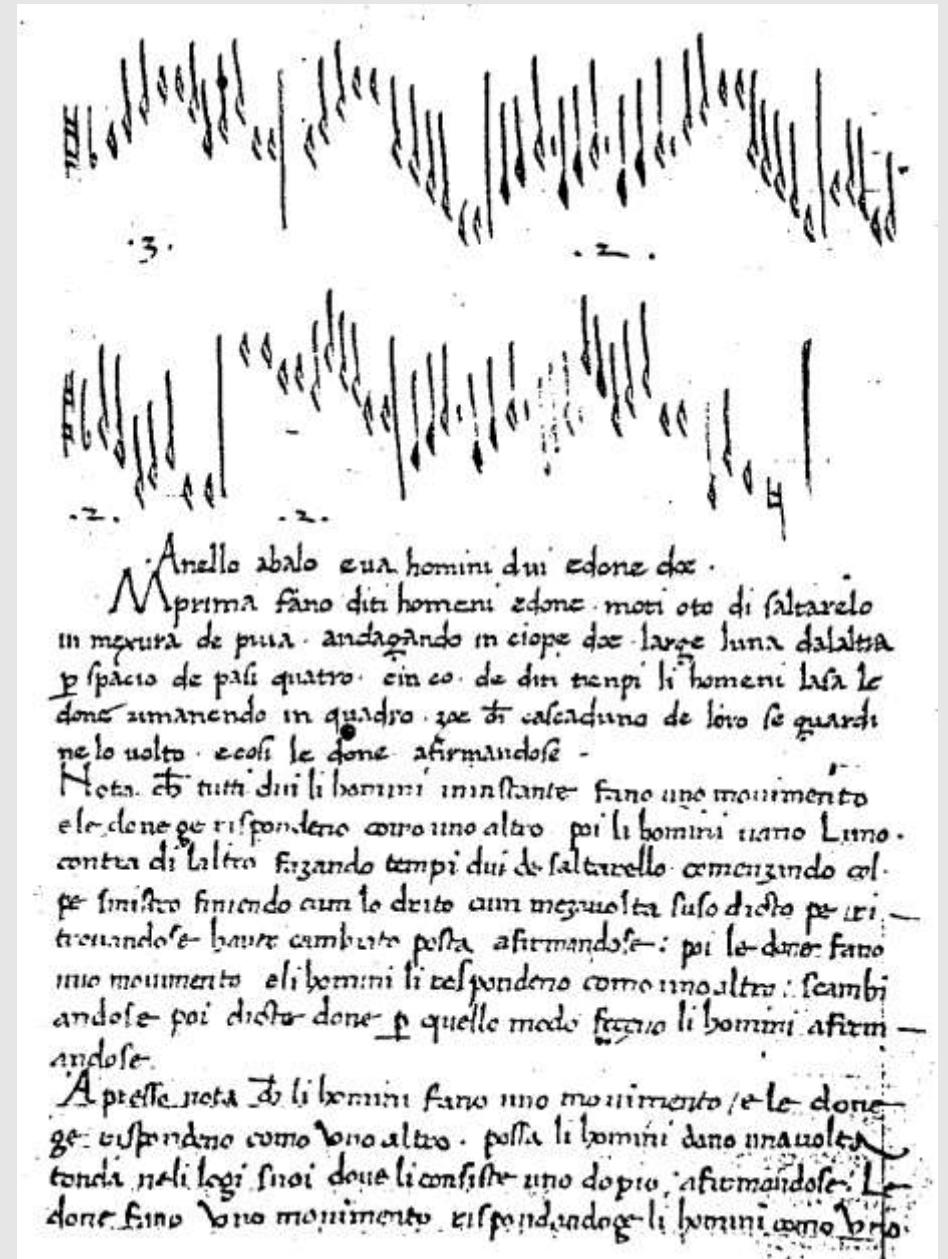 .3. .2.
.2. .2.
Anello abalo e va homini dui e done doe .
In prima fano diti homeni e done . moti oto di saltarelo
in mexura de piva . andagando in ciope doe . large luna dalaltra
p spacio de pasi quatro . e in co . de diti tienpi li homeni lasa le
done rimanendo in quadro . zoe ch cascaduno de loro se guardi
ne lo volto . e cosi le done . afirmandose -
Nota . ch tutti dui li homini in instante fano uno movimento
e le done ge rispondeno como uno altro . poi li homini vano Luno .
contra di laltro fazando tempi dui de saltarello . comenzando col .
pe sinistro finiendo cum lo drito cum meza volta suso dicto pe ri
trovandose haver cambiato posta afirmandose : poi le done fano
uno movimento e li homini li respondeno como uno altro : scambi
andose poi dicte done p quello modo feceno li homini afirm
andose .
Apresse nota ch li homini fano uno movimento / e le done
ge rispondeno como uno altro . possa li homini dano una volta
tonda neli logi suoi dove li consiste uno dopio , afirmandose . Le
done fano uno movimento rispondandoge li homini como uno .